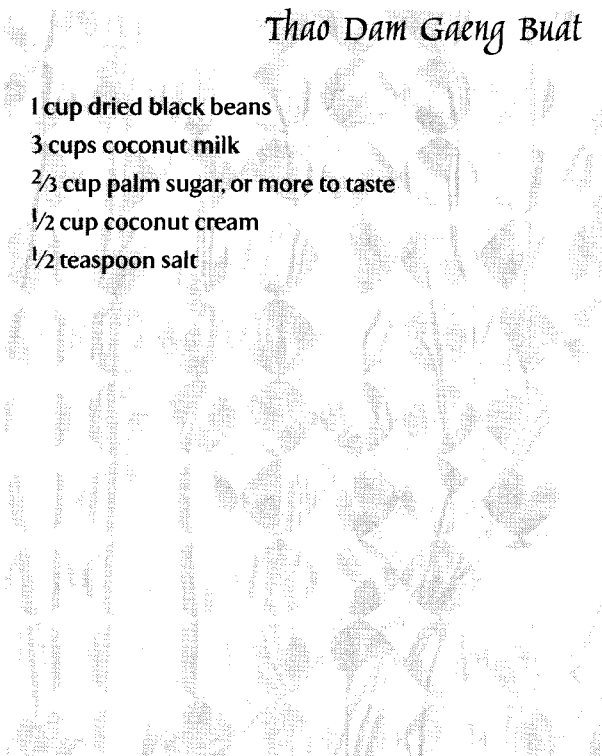 Thao Dam Gaeng Buat
1 cup dried black beans
3 cups coconut milk
2/3 cup palm sugar, or more to taste
1/2 cup coconut cream
1/2 teaspoon salt